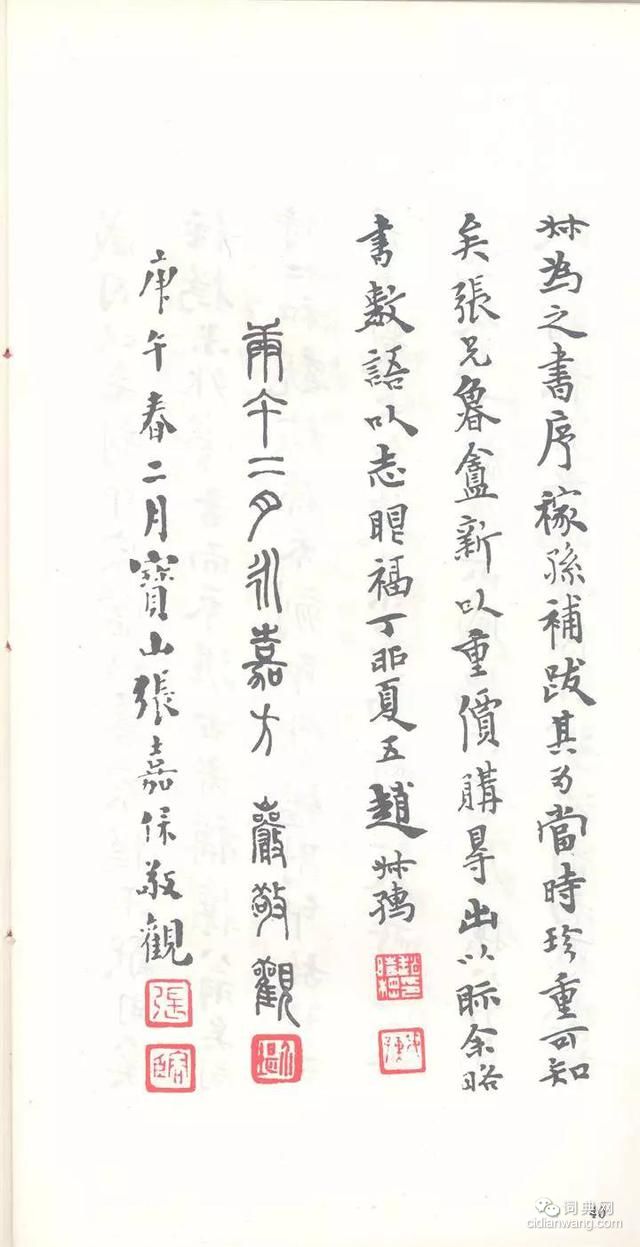 尗為之書序稼孫補跋其為當時珍重可知
矣張兄魯盦新以重價購㝵出以眎余略
書數語以志眼福丁卯夏五趙尗孺
庚午二月永嘉方巖敬觀
庚午春二月寶山張嘉保敬觀
張
40
词典网
cidianwang.com